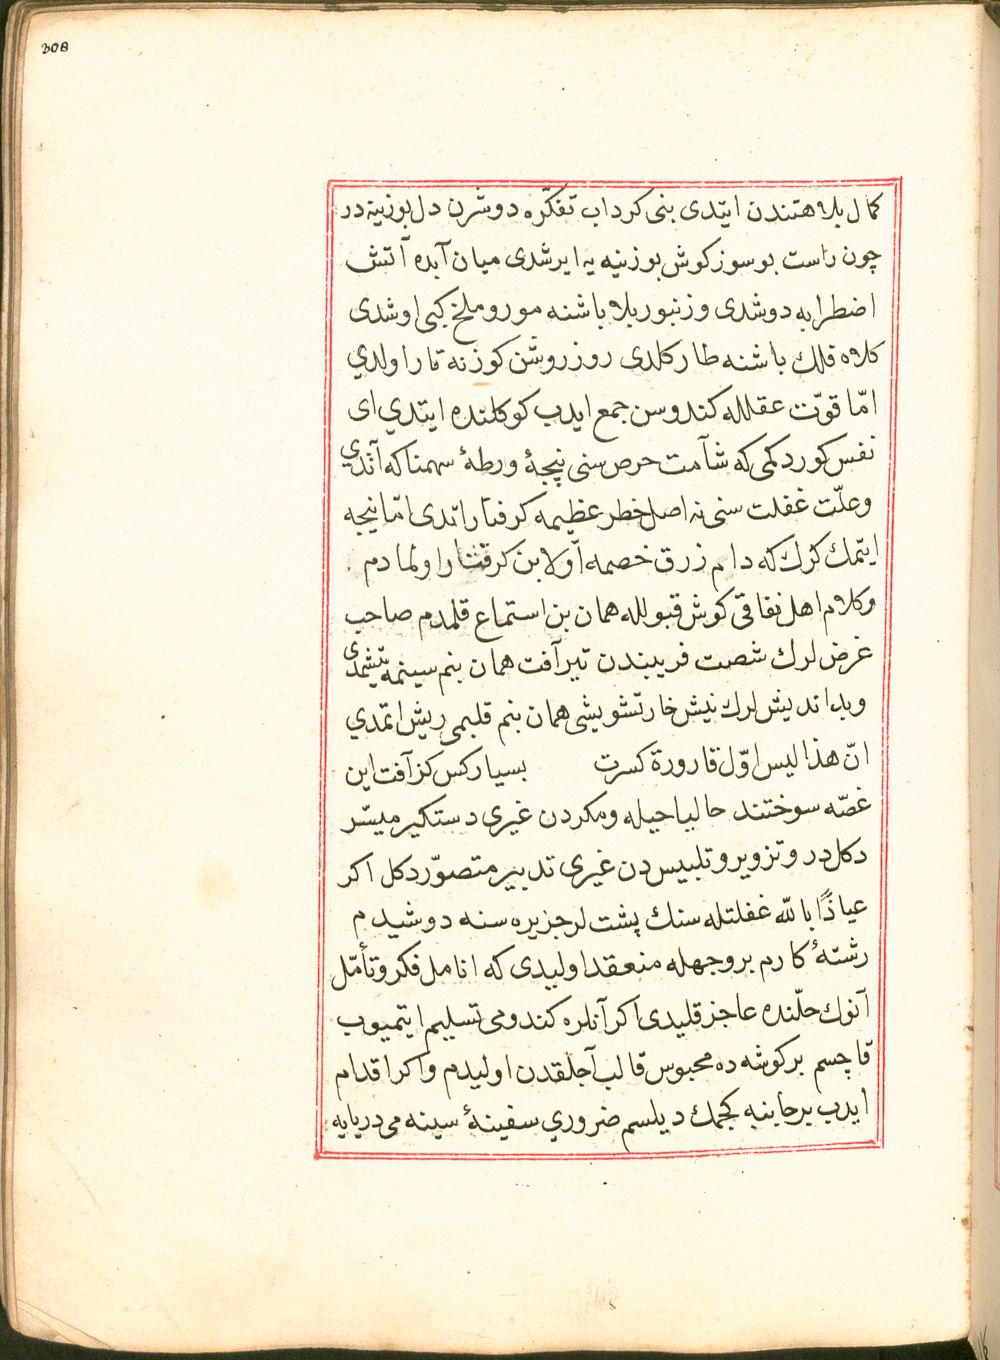 308
كمال بلاهتندن ايتدی بنی كرداب تفكّره دوشرن دل بوزينه در
چون راست بو سوز كوش بوزينه يه ايرشدی ميان آبده آتش
اضطرابه دوشدی و زنبور بلا باشنه مور و ملخ كبی اوشدی
كلاه فلك باشنه طار كلدی روز روشن كوزنه تار اولدي
امّا قوّت عقلله كندوسن جمع ايدب كوكلنده ايتدي ای
نفس كوردكمی كه شآمت حرص سنی نيجهٔ ورطهٔ سهمناكه آتدي
و علّت غفلت سنی نه اصل خطر عظيمه كرفتار اتدی امّا نيجه
ايتمك كرك كه دام زرق خصمه اوّلا بن كرفتار اولمادم
و كلام اهل نفاقی كوش قبولله همان بن استماع قلمدم صاحب
غرض لرك شصت فريبندن تير آفت همان بنم سينمه يتشمدی
و بد انديش لرك نيش خار تشويشی همان بنم قلبمی ريش اتمدي
انّ هذا ليس اوّل قارورة كسرت بسيار كس كز آفت اين
غصّه سوختند حاليا حيله و مكردن غيری دستكير ميسّر
دكلدر و تزوير و تلبيس دن غيری تدبير متصوّر دكل اكر
عياذًا بالله غفلتله سنك پشت لر جزيره سنه دوشيدم
رشتهٔ كارم بر وجهله منعقد اوليدی كه انامل فكر و تأمّل
آنوك حلّنده عاجز قليدی اكر آنلره كندومی تسليم ايتميوب
قاچسم بر كوشه ده محبوس قالب آجلقدن اوليدم و اكر اقدام
ايدب بر جانبه كچمك ديلسم ضروري سفينهٔ سينه می دريايه